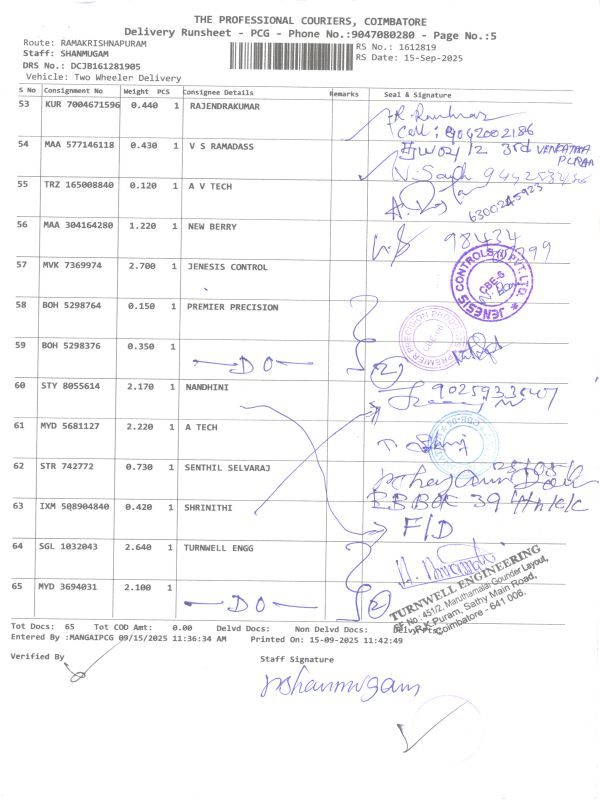 THE PROFESSIONAL COURIERS, COIMBATORE
Delivery Runsheet - PCG - Phone No.:9047080280 - Page No.:5
Route: RAMAKRISHNAPURAM
Staff: SHANMUGAM
DRS No.: DCJB161281905
Vehicle: Two Wheeler Delivery
RS No.: 1612819
RS Date: 15-Sep-2025
S No Consignment No Weight PCS Consignee Details Remarks Seal & Signature
53 KUR 7004671596 0.440 1 RAJENDRAKUMAR
Cell: 9042002186
54 MAA 577146118 0.430 1 V S RAMADASS
3rd
55 TRZ 165008840 0.120 1 A V TECH
6300245923
56 MAA 304164280 1.220 1 NEW BERRY
98434
57 MVK 7369974 2.700 1 JENESIS CONTROL
JENESIS CONTROLS (I) PVT. LTD.
CBE-6
58 BOH 5298764 0.150 1 PREMIER PRECISION
PREMIER PRECISION PRODUCTS
59 BOH 5298376 0.350 1
DO 2
60 STY 8055614 2.170 1 NANDHINI
61 MYD 5681127 2.220 1 A TECH
62 STR 742772 0.730 1 SENTHIL SELVARAJ
63 IXM 508904840 0.420 1 SHRINITHI
F/D
64 SGL 1032043 2.640 1 TURNWELL ENGG
65 MYD 3694031 2.100 1
DO 2
TURNWELL ENGINEERING
SF No : 451/2, Maruthamalai Gounder Layout,
R.K. Puram, Sathy Main Road,
Coimbatore - 641 006.
Tot Docs: 65 Tot COD Amt: 0.00 Delvd Docs: Non Delvd Docs:
Entered By :MANGAIPCG 09/15/2025 11:36:34 AM Printed On: 15-09-2025 11:42:49
Verified By
Staff Signature
nshanmugam